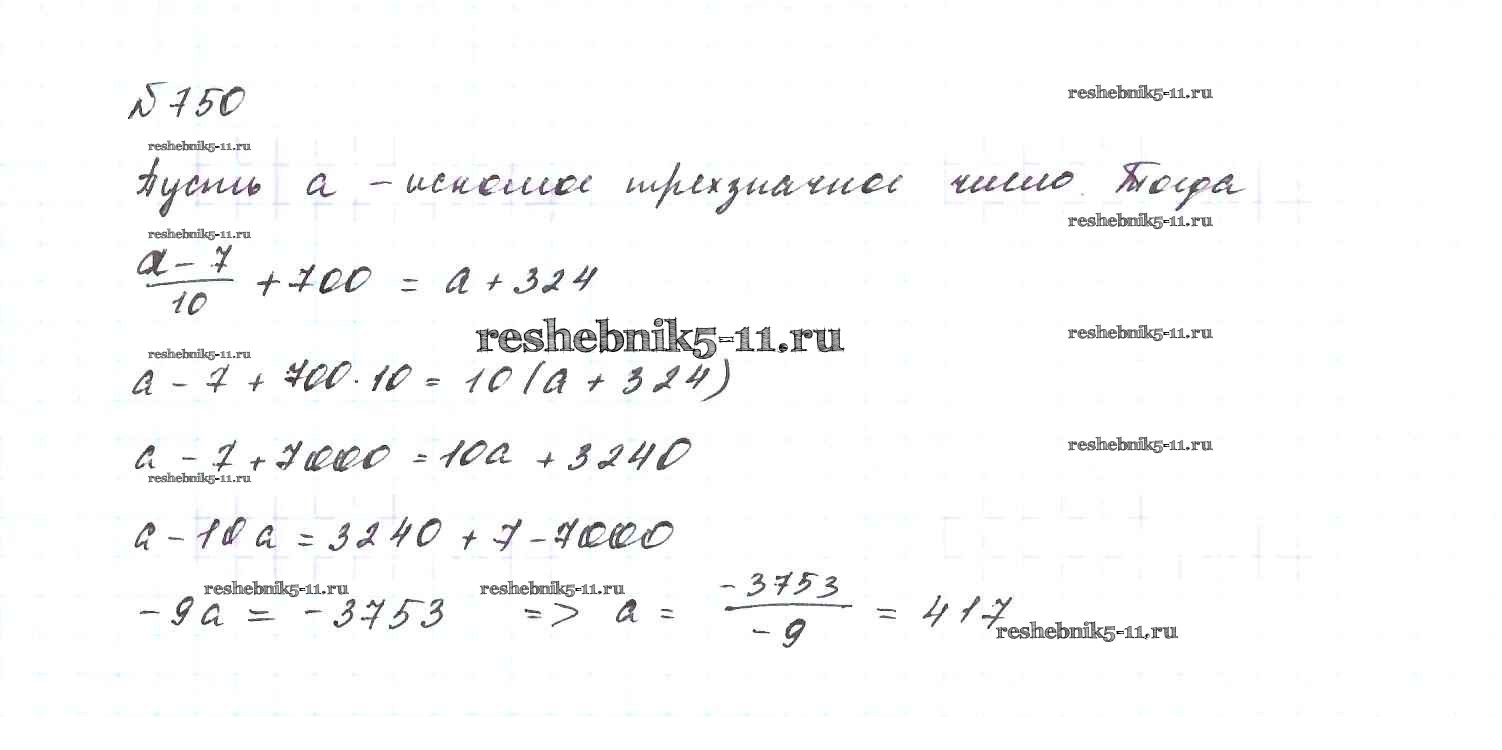 №750
reshebnik5-11.ru
reshebnik5-11.ru
Пусть a – искомое трехзначное число. Тогда
reshebnik5-11.ru
reshebnik5-11.ru
a – 7 / 10 + 700 = a + 324
reshebnik5-11.ru
reshebnik5-11.ru
reshebnik5-11.ru
a – 7 + 700·10 = 10(a + 324)
reshebnik5-11.ru
a – 7 + 7000 = 10a + 3240
reshebnik5-11.ru
a – 10a = 3240 + 7 – 7000
reshebnik5-11.ru reshebnik5-11.ru
–9a = –3753 => a = –3753 / –9 = 417
reshebnik5-11.ru